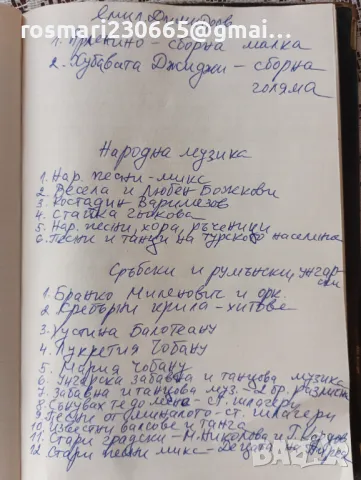 Емил Димитров
rosmari230665@gmai...
1. Арлекино - сборна малка
2. Хубавата Джиджи - сборна
голяма
Народна музика
1. Нар. песни - микс
2. Весела и Любен Божкови
3. Костадин Варимезов
4. Стайка Гьокова
5. Нар. песни, хора, ръченици
6. Песни и танци на турското население
Сръбски и румънски, унгар-
ски
1. Бранко Миленович и орк.
2. Сребърни крила - хитове
3. Устина Балотеану
4. Лукретия Чобану
5. Мария Чобану
6. Унгарска забавна и танцова музика
7. Забавна и танцова муз. - 2 бр. различни
8. Сънувах те до мене - ст. шлагери
9. Песни от миналото - ст. шлагери
10. Известни валсове и танга
11. Стари градски - М. Николова и Г. Кордов
12. Стари песни микс - Децата на
bazar